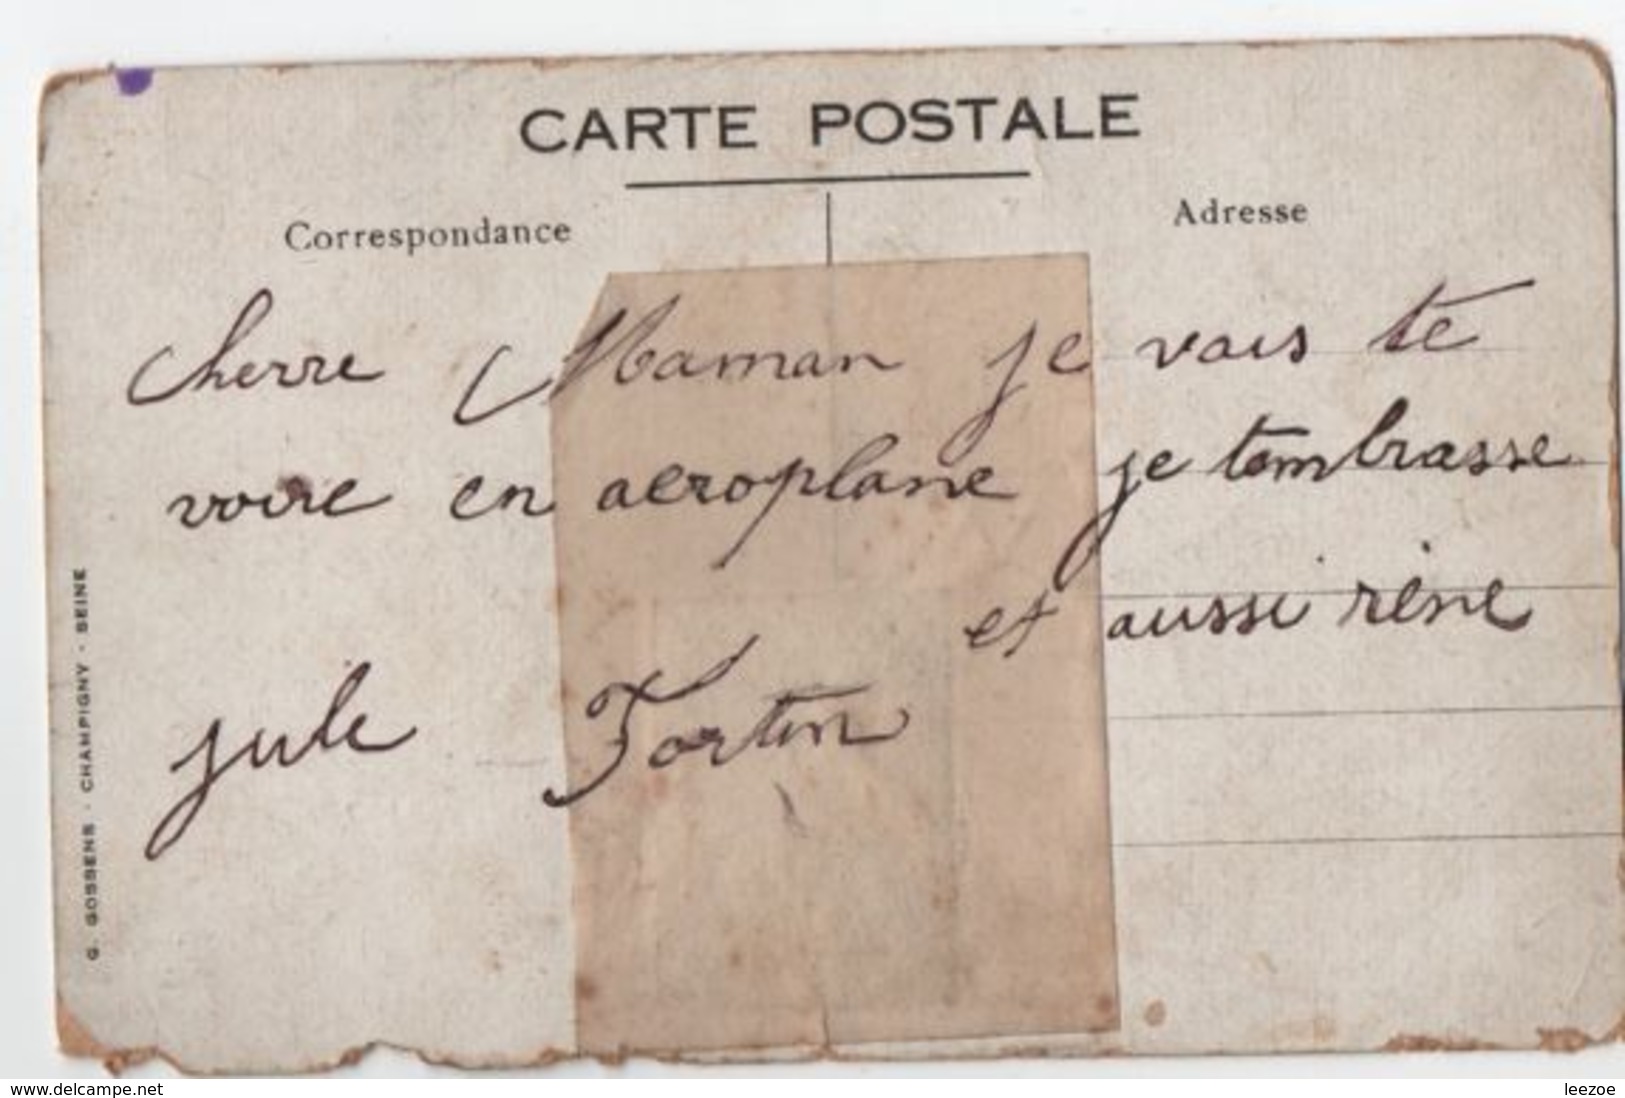 CARTE POSTALE
Correspondance
Adresse
cherre Maman je vais te
voire en aeroplane je tembrasse
et aussi réne
jule Fortin
G. GOSSENS - CHAMPIGNY - SEINE
www.delcampe.net
leezoe